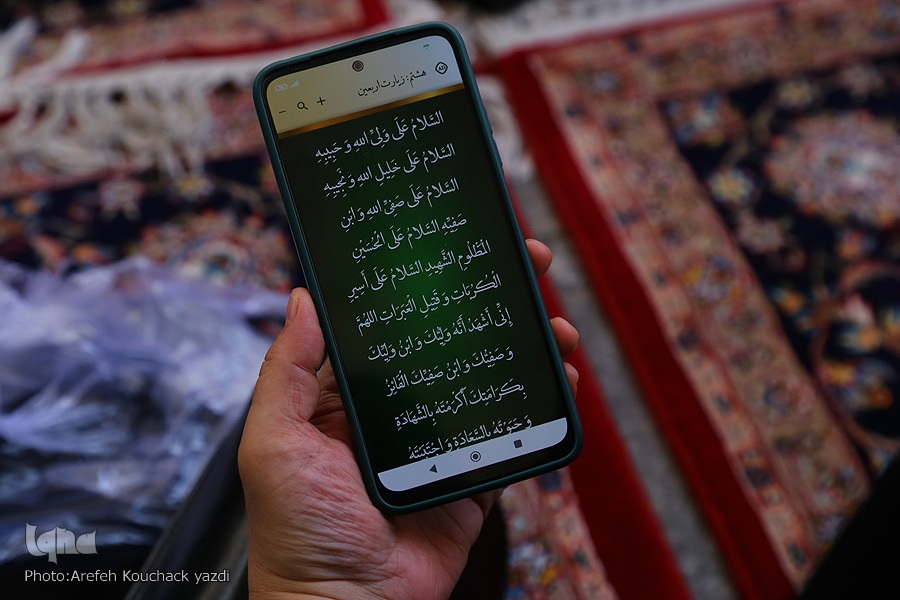 هشتم: زیارت اربعین
السَّلَامُ عَلَى وَلِيِّ اللَّهِ وَ حَبِيبِهِ
السَّلَامُ عَلَى خَلِيلِ اللَّهِ وَ نَجِيبِهِ
السَّلَامُ عَلَى صَفِيِّ اللَّهِ وَ ابْنِ
صَفِيِّهِ السَّلَامُ عَلَى الْحُسَيْنِ
الْمَظْلُومِ الشَّهِيدِ السَّلَامُ عَلَى أَسِيرِ
الْكُرُبَاتِ وَ قَتِيلِ الْعَبَرَاتِ اللَّهُمَّ
إِنِّي أَشْهَدُ أَنَّهُ وَلِيُّكَ وَ ابْنُ وَلِيِّكَ
وَ صَفِيُّكَ وَ ابْنُ صَفِيِّكَ الْفَائِزُ
بِكَرَامَتِكَ أَكْرَمْتَهُ بِالشَّهَادَةِ
وَ حَبَوْتَهُ بِالسَّعَادَةِ وَ اجْتَبَيْتَهُ
iqna
Photo:Arefeh Kouchack yazdi